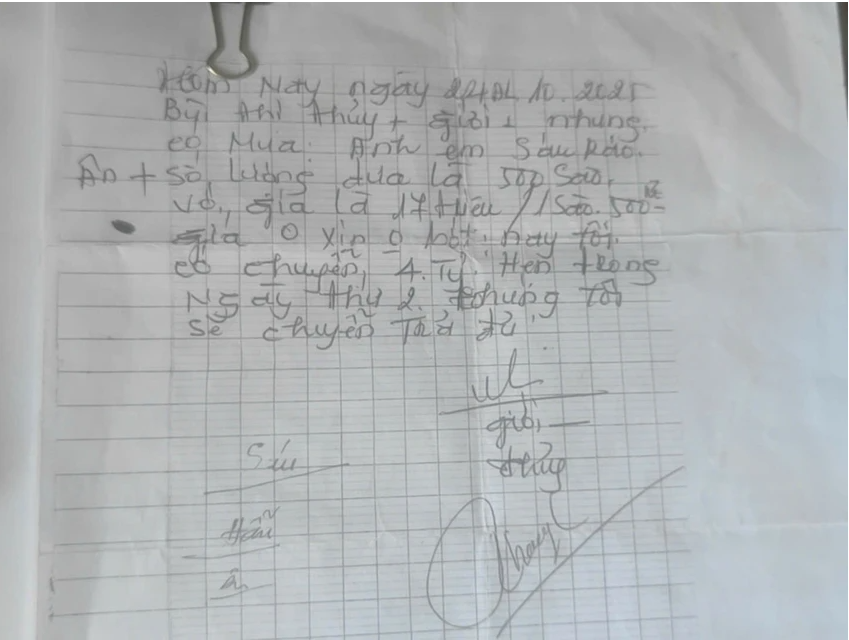 Hôm Nay ngày 24 ĐL 10.2025
Bùi thị thủy + giỏi + nhung.
có Mua: Anh em Sáu Ráo.
Ân + Số lượng dưa là 500 Sào.
Với, gía là 17 triệu / 1 Sào. 500
gía 0 xin 0 bớt, nay tôi.
có chuyển, 4. Tỷ. Hẹn trong
Ngày thứ 2. chúng tôi
sẽ chuyển Trả đủ
giỏi
thủy
Sáu
Hẩu
Ân